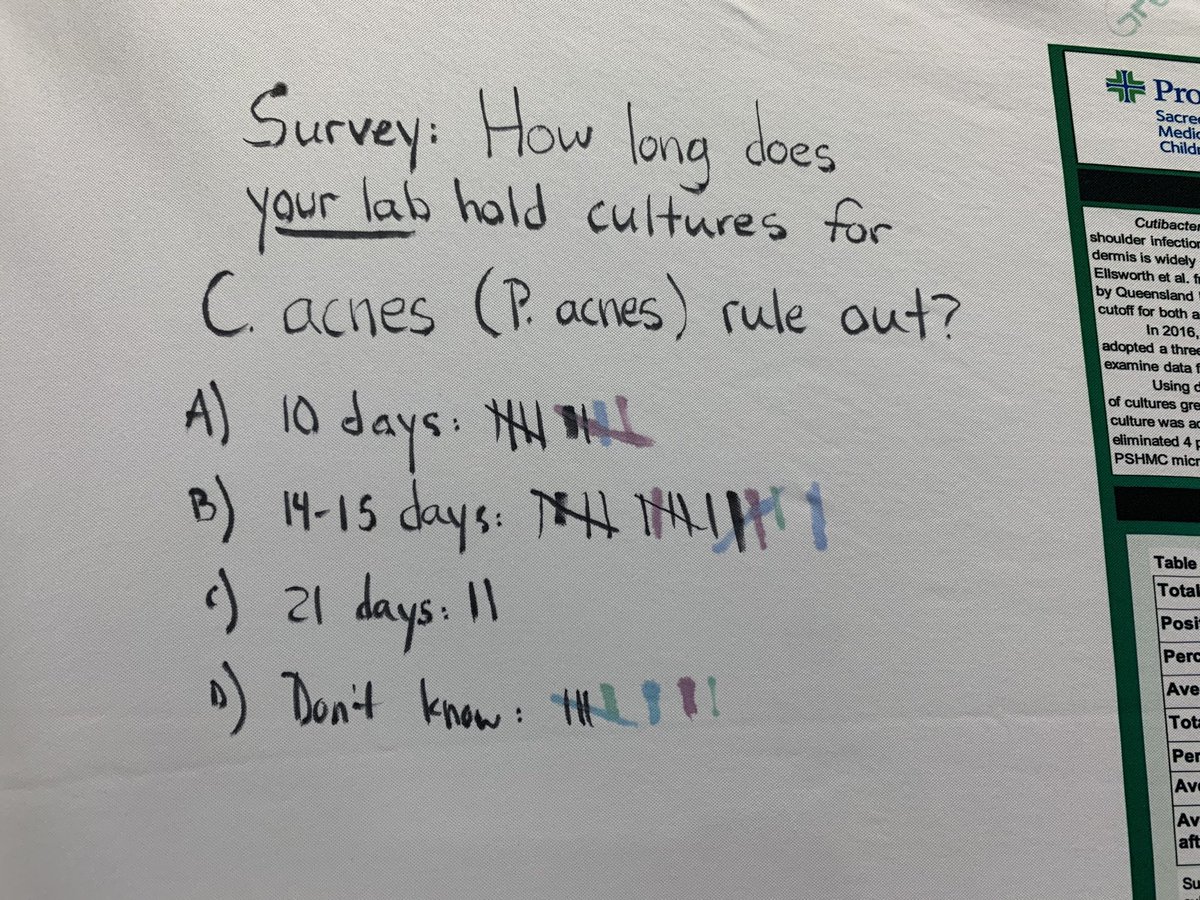 Survey: How long does
your lab hold cultures for
C. acnes (P. acnes) rule out?
A) 10 days:
B) 14-15 days:
C) 21 days: II
D) Don't know:
Pro
Sacre
Medic
Child
Cutibacter
shoulder infection
dermis is widely
Ellsworth et al. f
by Queensland
cutoff for both a
In 2016,
adopted a three
examine data f
Using d
of cultures gre
culture was ac
eliminated 4 p
PSHMC micr
Table
Total
Posi
Perc
Ave
Tota
Per
Ave
Av
aft
Su